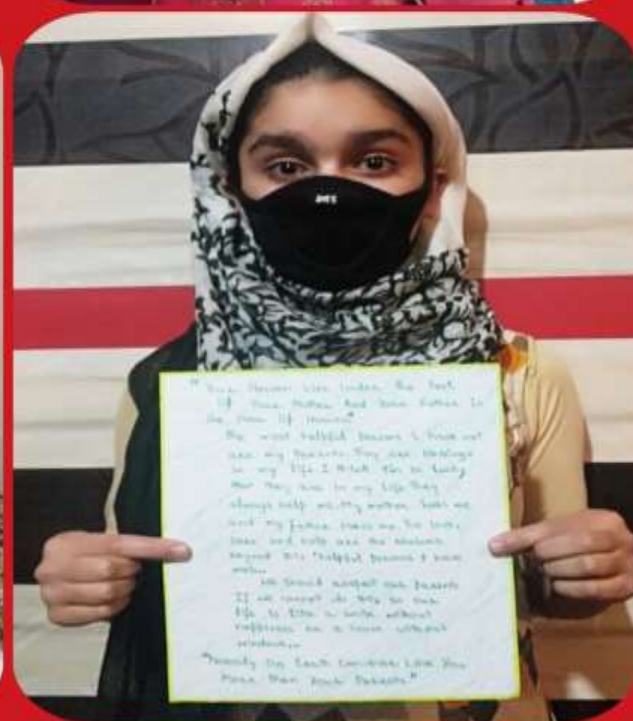 " Your Heaven Lies Under The Feet
Of Your Mother And Your Father Is
the Door Of Heaven"
The most helpful persons I have met
are my parents. They are blessings
in my life I think I'm so lucky
that they are in my life They
always help me. My mother
and my father love me
care and help are the
beyond this "helpful persons I have
met..
We should our parents
If we cannot do this so our
life is like a without
happiness or a house without
windows..
"Nobody On Earth Can Ever Love You
More Than Your Parents"